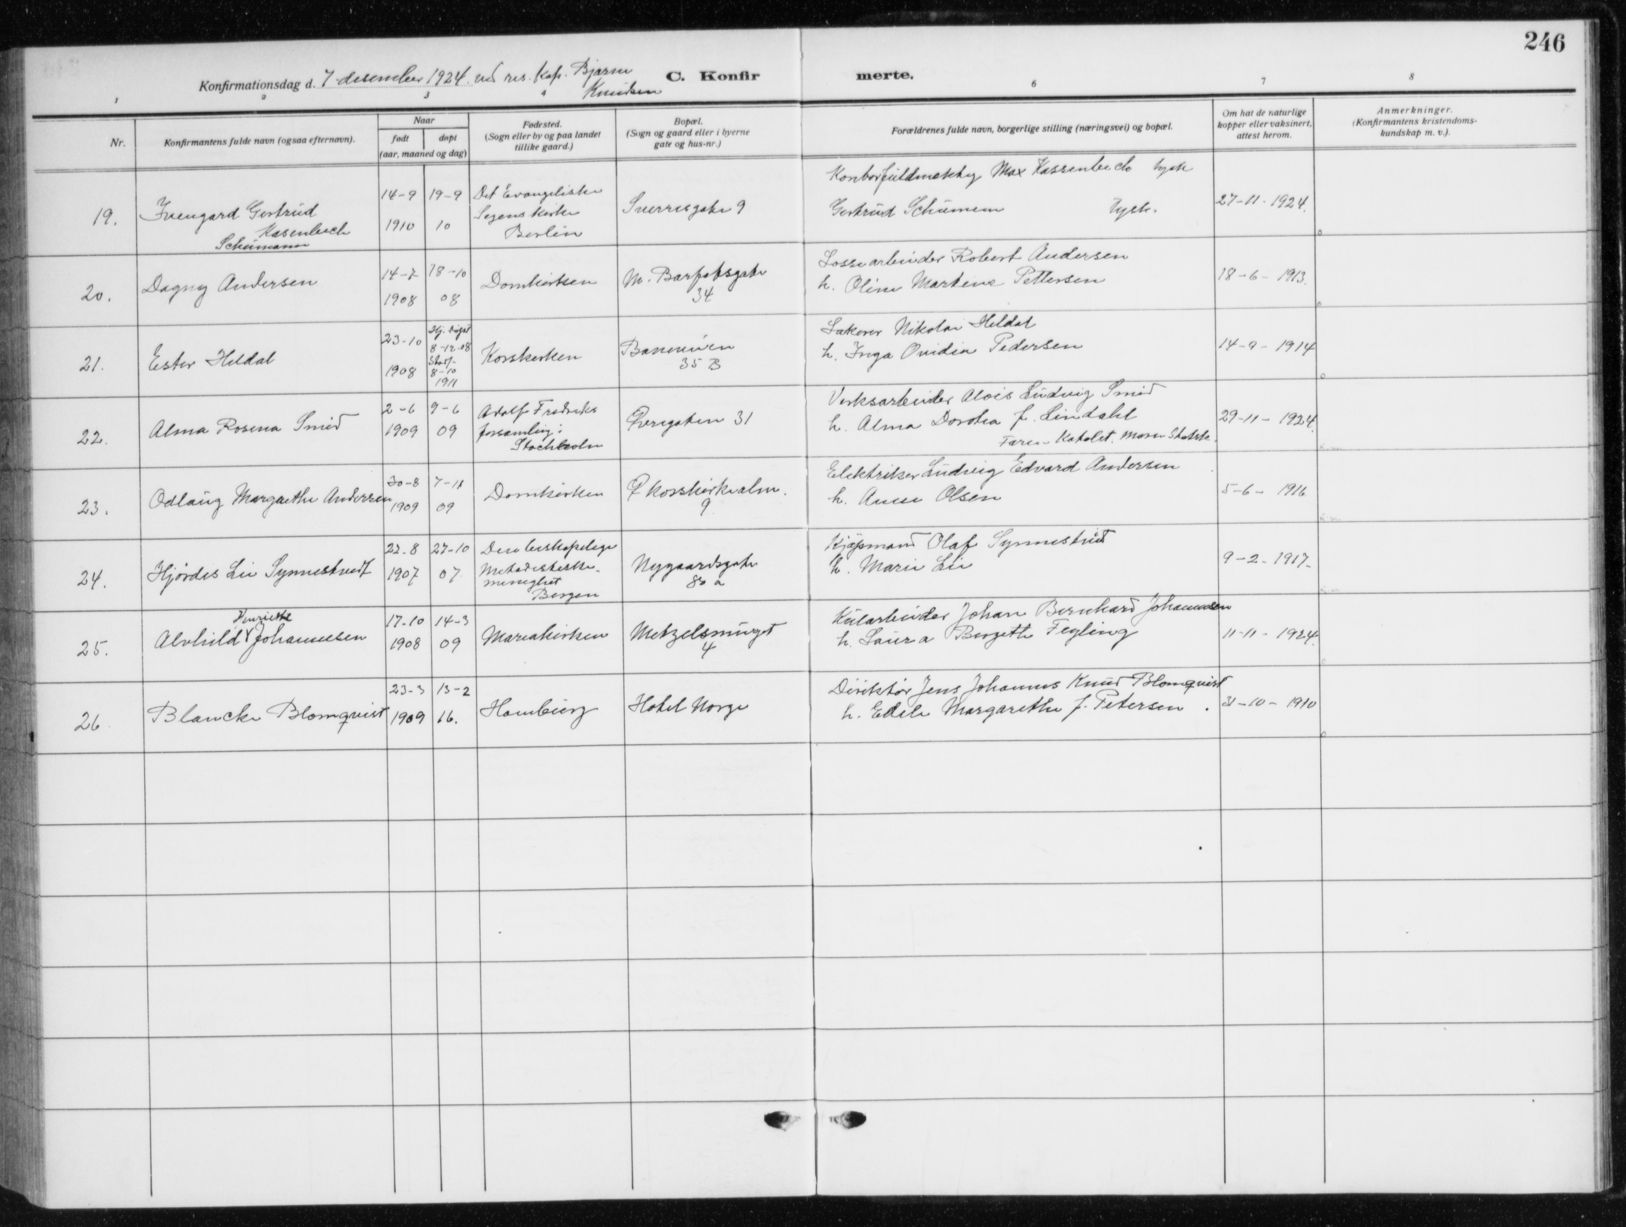 246
Konfirmationsdag d. 7 desember 1924 ved res. kap. Bjarne Knudsen
C. Konfirmerte.
1 2 3 4 6 7 8
Nr.
Konfirmantens fulde navn (ogsaa efternavn).
Naar
født
døpt
(aar, maaned og dag)
Fødested.
(Sogn eller by og paa landet
tillike gaard.)
Bopæl.
(Sogn og gaard eller i byerne
gate og hus-nr.)
Forældrenes fulde navn, borgerlige stilling (næringsvei) og bopæl.
Om hat de naturlige
kopper eller vaksinert,
attest herom.
Anmerkninger.
(Konfirmantens kristendoms-
kundskap m. v.).
19. Gertrud
Schümann
14-9 1910
19-9 10
Det Evangeliske
Segens kirke
Berlin
Sverresgate 9
Max Kassenbeck tysk
Gertrud Schümann tysk.
27-11-1924.
20. Dagny Andersen
14-7 1908
18-10 08
Domkirken
M. Barfotsgate
34
Lossearbeider Robert Andersen
h. Oline Martene Pettersen
18-6-1913.
21. Ester Heldal
23-10 1908
8-12-08
8-10
1911
Korskirken
35 B
Nikolai Heldal
h. Inga Ovidia Pedersen
14-9-1914
22. Alma Rosina Smid
2-6 1909
9-6 09
Adolf Fredriks
forsamling i
Stockholm
Øvregaten 31
Verksarbeider Alois Ludvig Smid
h. Alma Dorotea f. Lindahl
Faren Katolsk. Moren Statsk.
29-11-1924.
23. Odlaug Margrethe Andersen
30-8 1909
7-11 09
Domkirken
Ø. Korskirkealm.
9
Elektriker Ludvig Edvard Andersen
h. Anne Olsen
5-6-1916
24. Hjørdis Lie Synnestvedt
22-8 1907
27-10 07
Den biskopelige
Metodistkirke
menighet
Bergen
Nygaardsgate
80 a
Kjøpmand Olaf Synnestvedt
h. Marie Lie
9-2-1917.
25. Alvhild Henriette Johannesen
17-10 1908
14-3 09
Mariakirken
Metzelsmuget
4
Kularbeider Johan Bernhard Johannesen
h. Laura Bergethe Fegling
11-11-1924.
26. Blancke Blomqvist
23-3 1909
13-2 16.
Hamburg
Hotel Norge
Direktør Jens Johannes Knud Blomqvist
h. Edele Margarethe f. Petersen.
31-10-1910